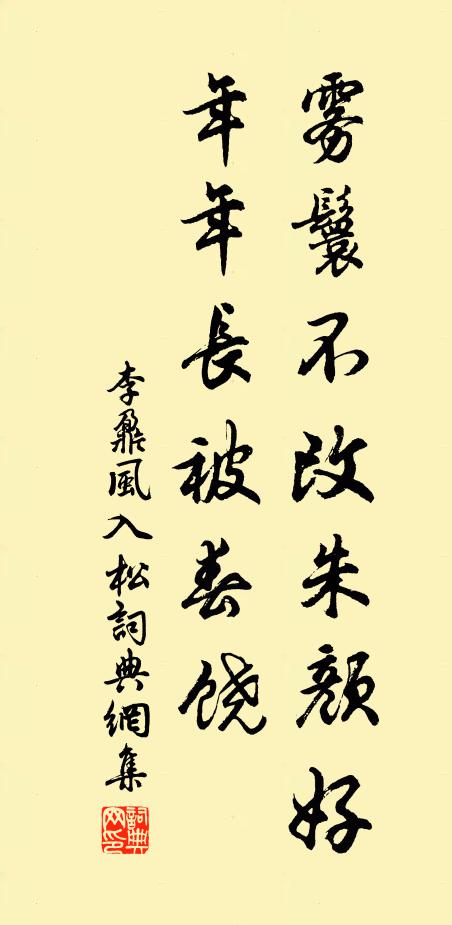 雾鬟不改朱颜好
年年長被春饶
李鼐風入松詞典網集
詞典
网印